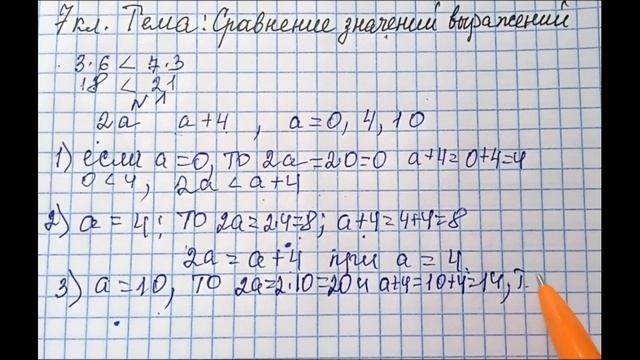 7 кл. Тема: Сравнение значений выражений
3·6 < 7·3
18 < 21
№1
2a a+4, a=0, 4, 10
1) если a=0, то 2a=2·0=0 a+4=0+4=4
0<4, 2a<a+4
2) a=4; то 2a=2·4=8; a+4=4+4=8
2a=a+4 при a=4
3) a=10, то 2a=2·10=20 и a+4=10+4=14, т